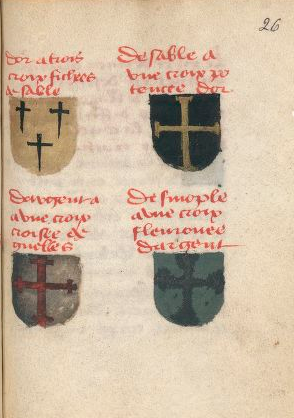 26
dor a trois
croix fichees
de sable
de sable a
vne croix po
tencee dor
dargent a
vne croix
croisee de
guelles
de sinople
a vne croix
fleuronee
dargent